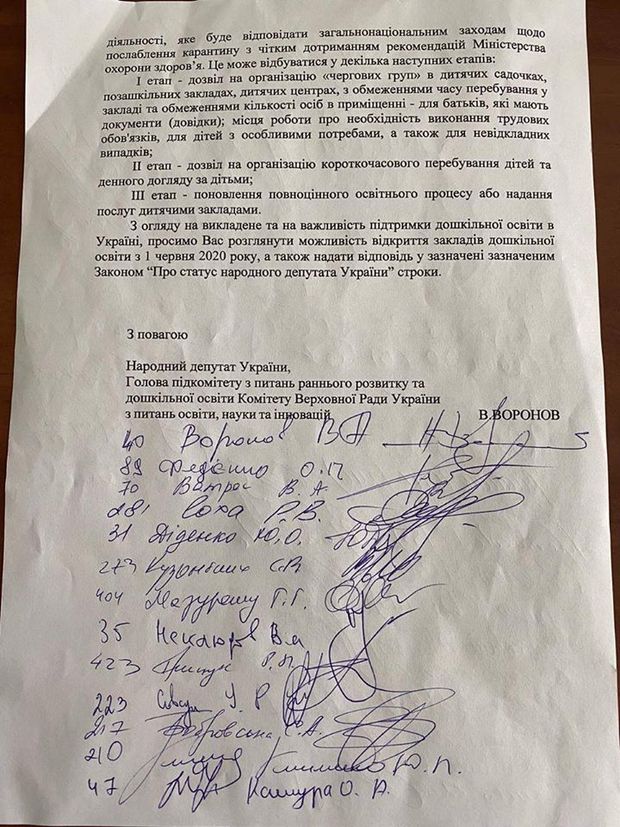 діяльності, яке буде відповідати загальнонаціональним заходам щодо
послаблення карантину з чітким дотриманням рекомендацій Міністерства
охорони здоров'я. Це може відбуватися у декілька наступних етапів:
І етап - дозвіл на організацію «чергових груп» в дитячих садочках,
позашкільних закладах, дитячих центрах, з обмеженнями часу перебування у
закладі та обмеженнями кількості осіб в приміщенні - для батьків, які мають
документи (довідки); місця роботи про необхідність виконання трудових
обов'язків, для дітей з особливими потребами, а також для невідкладних
випадків;
ІІ етап - дозвіл на організацію короткочасового перебування дітей та
денного догляду за дітьми;
ІІІ етап - поновлення повноцінного освітнього процесу або надання
послуг дитячими закладами.
З огляду на викладене та на важливість підтримки дошкільної освіти в
Україні, просимо Вас розглянути можливість відкриття закладів дошкільної
освіти з 1 червня 2020 року, а також надати відповідь у зазначені зазначеним
Законом “Про статус народного депутата України” строки.
З повагою
Народний депутат України,
Голова підкомітету з питань раннього розвитку та
дошкільної освіти Комітету Верховної Ради України
з питань освіти, науки та інновацій В.ВОРОНОВ
40 Воронов В А
89 О.П
70 В. А.
281 Соха Р.В.
31 Діденко Ю.О.
273
404 Мазурашу Г.Г.
35 Неклюдов В.М
423
223 Р
217
210 Ю. П.
47 Кашура О. А.